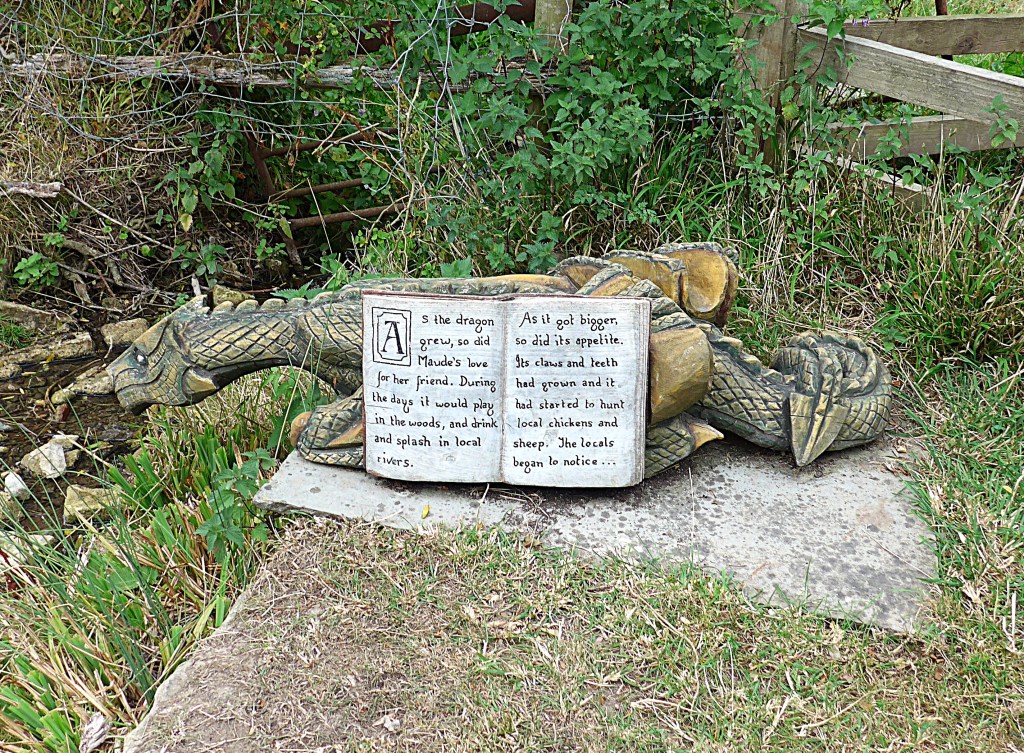 As the dragon
grew, so did
Maude's love
for her friend. During
the days it would play
in the woods, and drink
and splash in local
rivers.
As it got bigger,
so did its appetite.
Its claws and teeth
had grown and it
had started to hunt
local chickens and
sheep. The locals
began to notice...